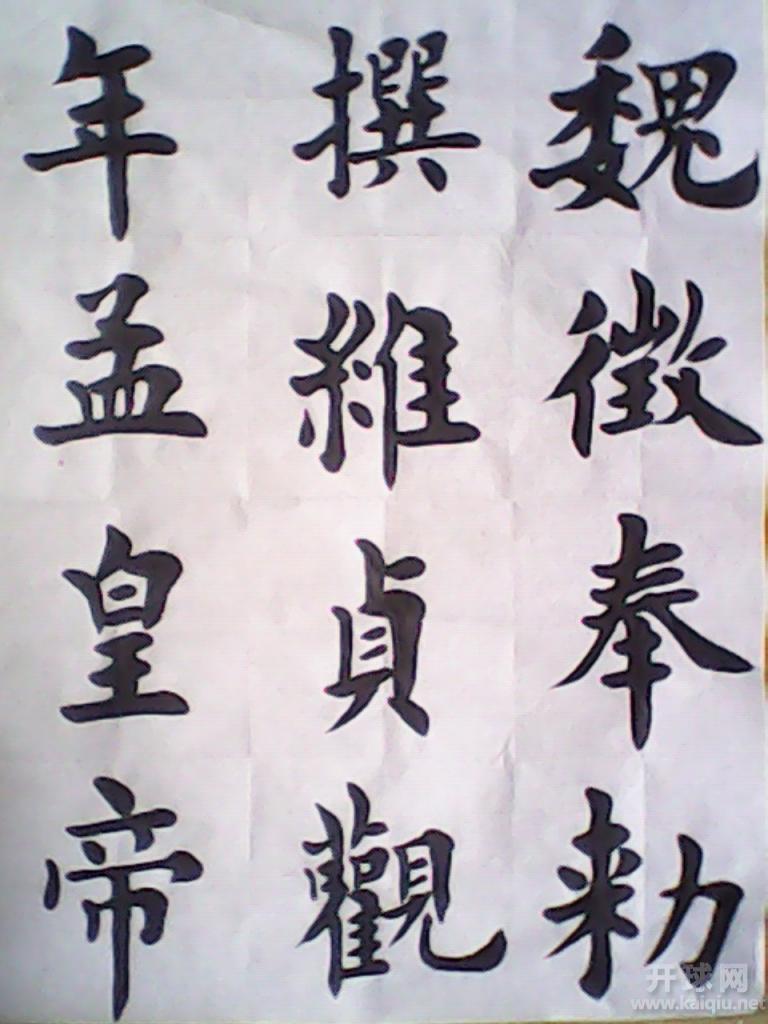 魏徵奉勑
撰維貞觀
年孟皇帝
开球网
www.kaiqiu.net